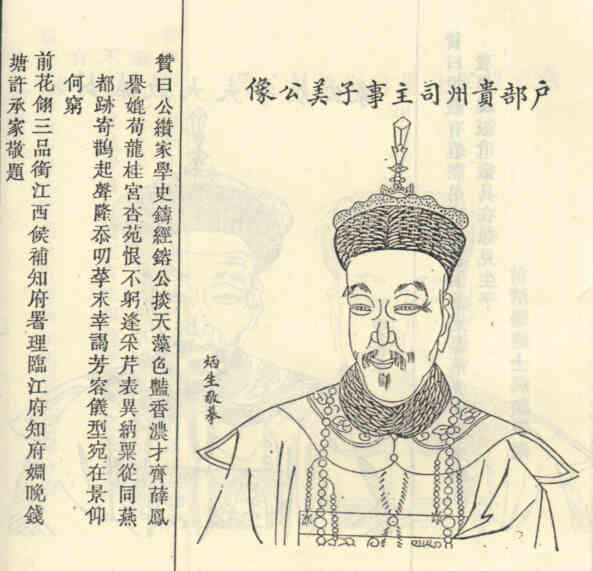 戶部貴州司主事子美公像
炳生敬摹
贊曰公纘家學史鑄經鎔公掞天藻色豔香濃才齊薛鳳
譽媲荀龍桂宮杏苑恨不躬逢采芹表異納粟從同燕
都跡寄鵲起聲隆忝叨莩末幸謁芳容儀型宛在景仰
何窮
前花翎三品銜江西候補知府署理臨江府知府姻晚錢
塘許承家敬題